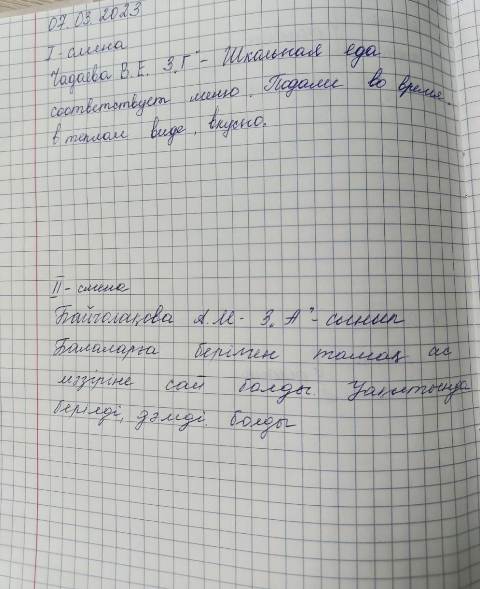 07.03.2023
I - смена
Чадаева В.Е. 3„Г" - Школьная еда
соответствует меню. Подали во время.
в теплом виде, вкусно.
II - смена
Байчолақова А.М - 3„А" - сынып
Балаларға берілген тамақ ас
мәзіріне сай болды. Уақытында
берілді, дәмді болды